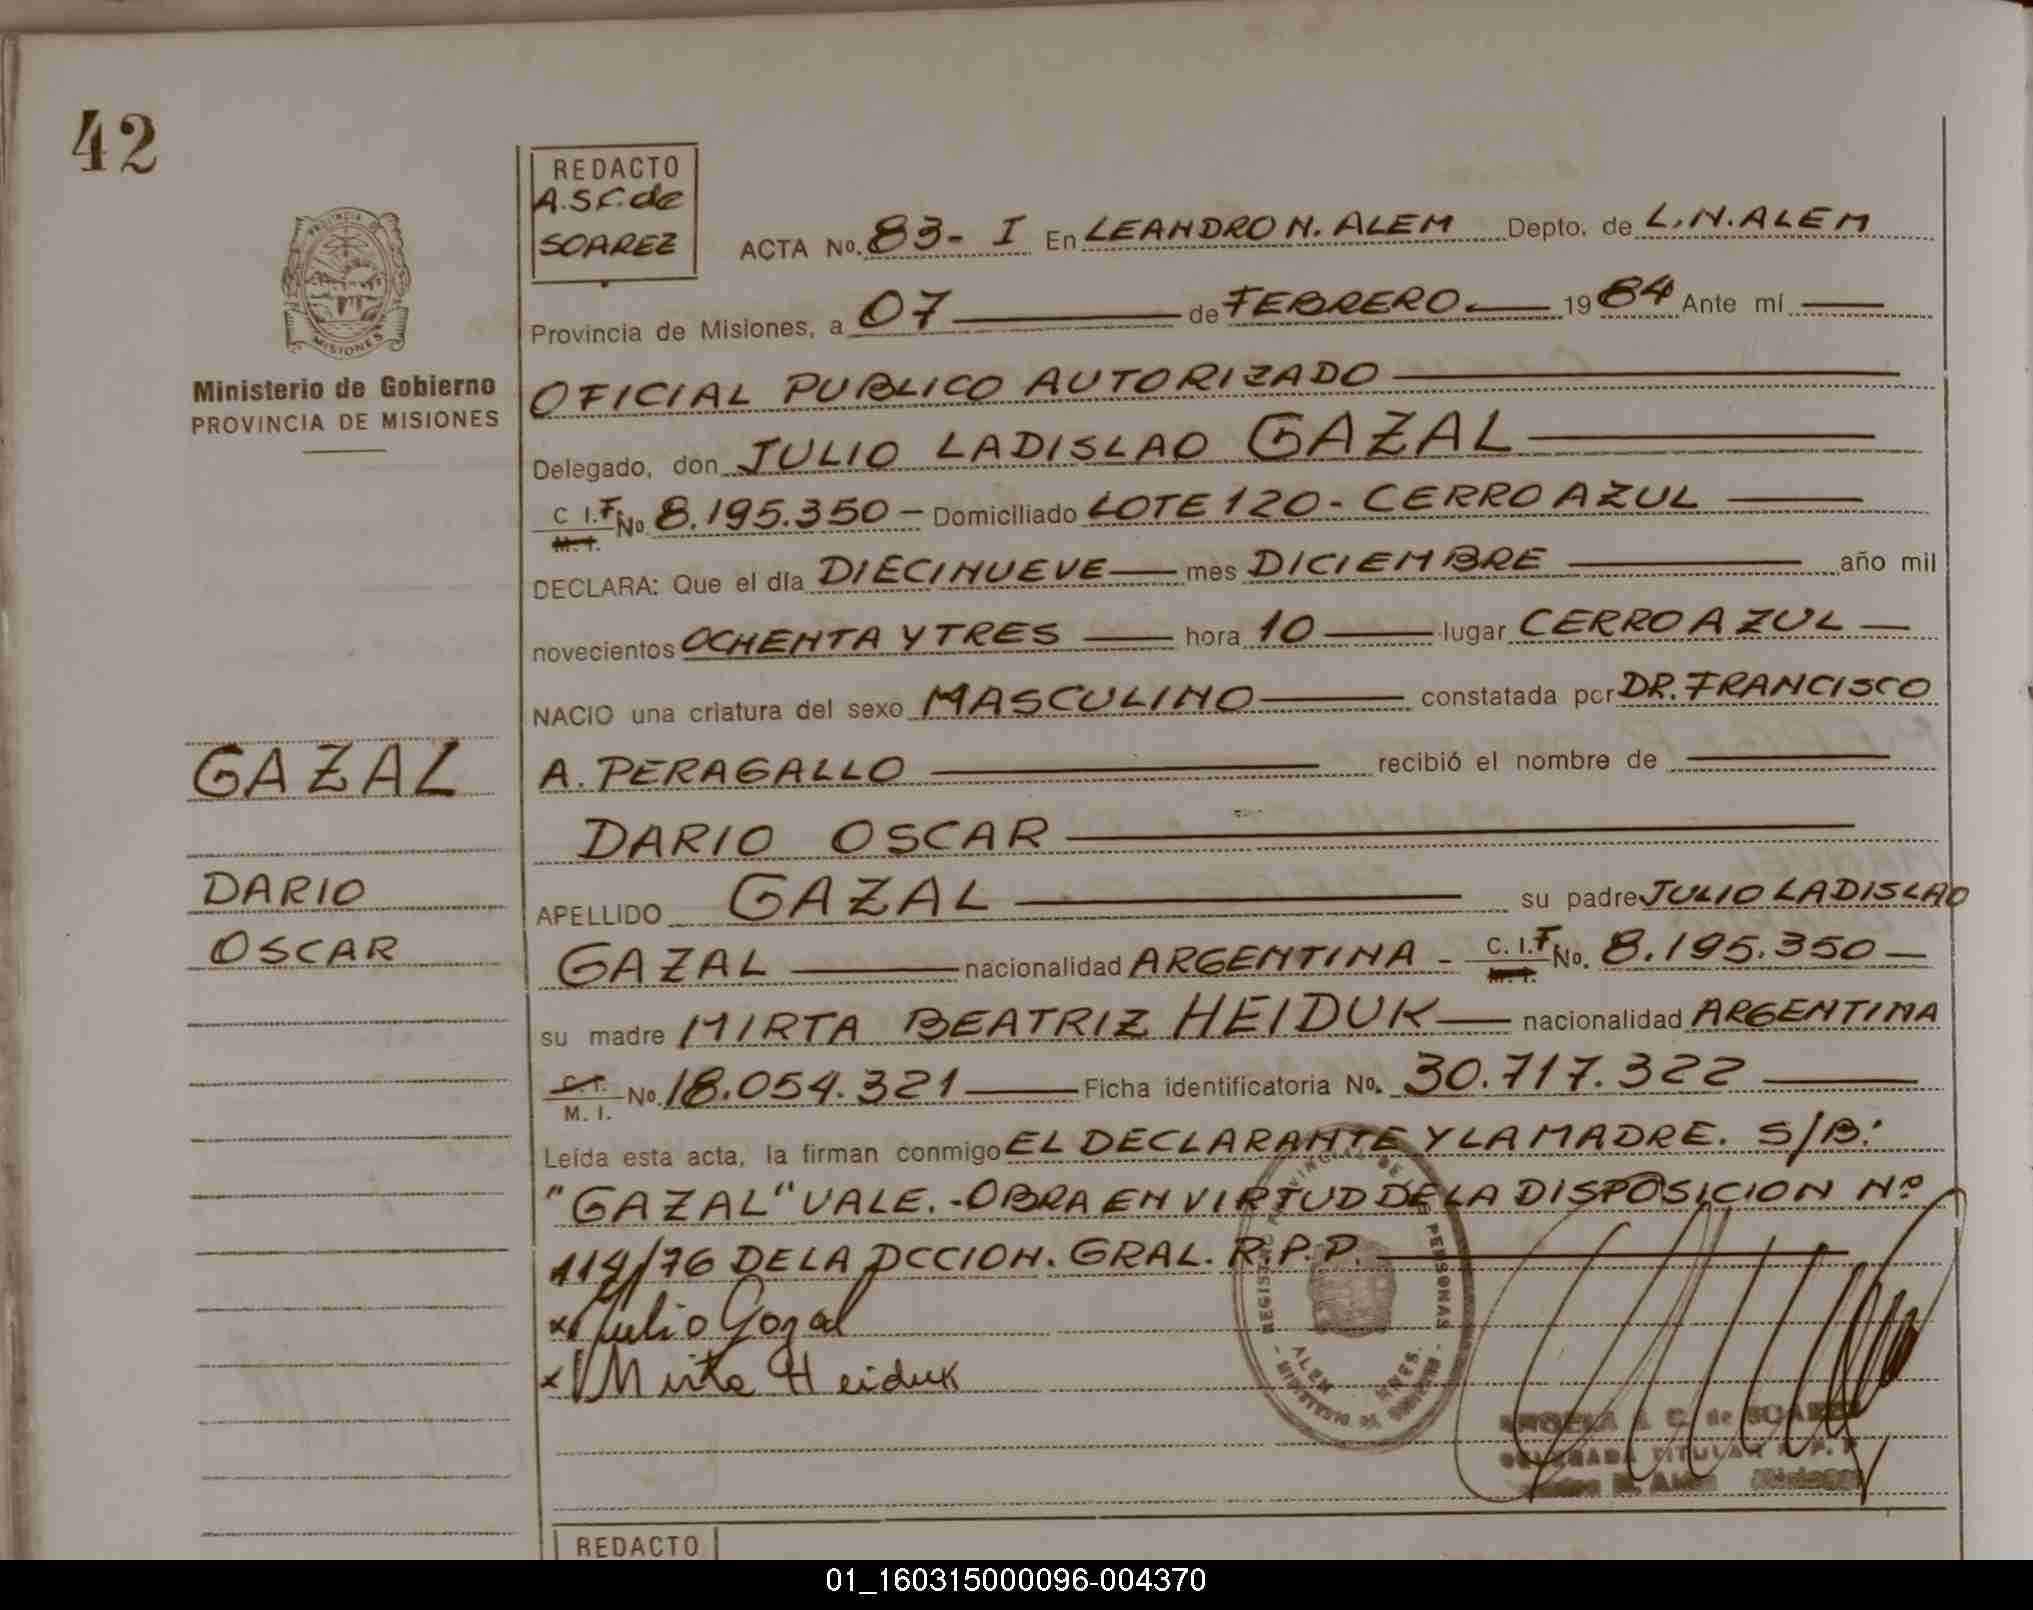 42
REDACTO
A.S.C. de
SOAREZ
ACTA No. 83- I En LEANDRO N. ALEM Depto. de L.N. ALEM
PROVINCIA
MISIONES
Provincia de Misiones, a 07 de FEBRERO 1984 Ante mí
Ministerio de Gobierno
PROVINCIA DE MISIONES
OFICIAL PUBLICO AUTORIZADO
Delegado, don JULIO LADISLAO GAZAL
C. I. F. M. I. No. 8.195.350 - Domiciliado LOTE 120 - CERRO AZUL
DECLARA: Que el día DIECINUEVE mes DICIEMBRE año mil
novecientos OCHENTA Y TRES hora 10 lugar CERRO AZUL
NACIO una criatura del sexo MASCULINO constatada por DR. FRANCISCO
A. PERAGALLO recibió el nombre de
GAZAL
DARIO OSCAR
DARIO
APELLIDO GAZAL su padre JULIO LADISLAO
OSCAR
GAZAL nacionalidad ARGENTINA - C. I. F. M. I. No. 8.195.350
su madre MIRTA BEATRIZ HEIDUK nacionalidad ARGENTINA
C. I. M. I. No. 18.054.321 Ficha identificatoria No. 30.717.322
Leída esta acta, la firman conmigo EL DECLARANTE Y LA MADRE. S/B:
"GAZAL" VALE.-OBRA EN VIRTUD DE LA DISPOSICION Nº
114/76 DE LA DCCION. GRAL. R.P.P.
x Julio Gazal
x Mirta Heiduk
REGISTRO PROVINCIAL DE LAS PERSONAS
ALEM MNES.
ANGELA S. C. de SOAREZ
DELEGADA TITULAR R. P. P.
REDACTO
01_160315000096-004370